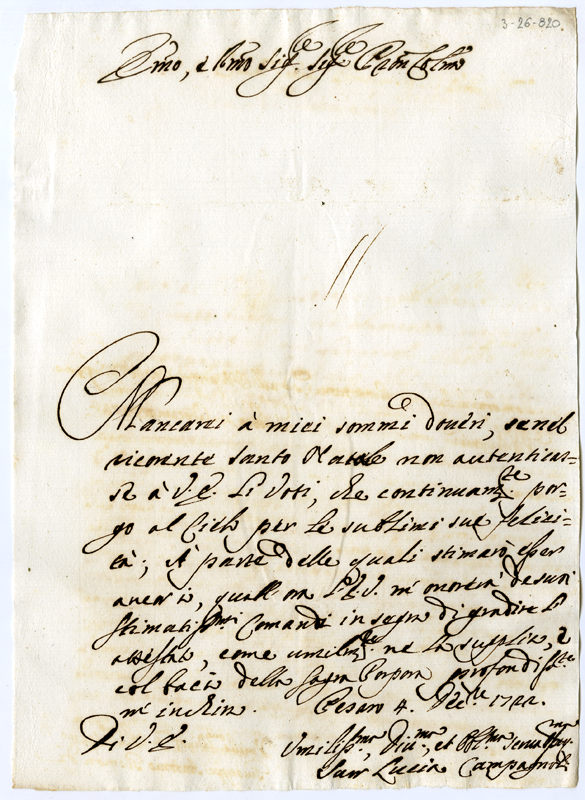 3-26-820
Emo, e Rmo Sig.re Sig.re Pron Colmo
Mancarei à miei sommi doveri, se nel
ricorente Santo Natale non autenticas-
se à V.E. li voti, che continuam.te por-
go al Cielo per le sublimi sue felici-
tà; A parte delle quali stimarò esser
ancor io, quall'ora l'E.V. m'onorerà de suoi
stimatiss.mi comandi in segno di gradire li
attestati, come umilm.te ne la supplico, e
col bacio della Sagra Porpora profondiss.te
m'inchino. Pesaro 4. Dec.bre 1722.
Di V.E.
Umiliss.mo, Div.mo, et Obl.mo Serv.re
Lucia Campagnoli